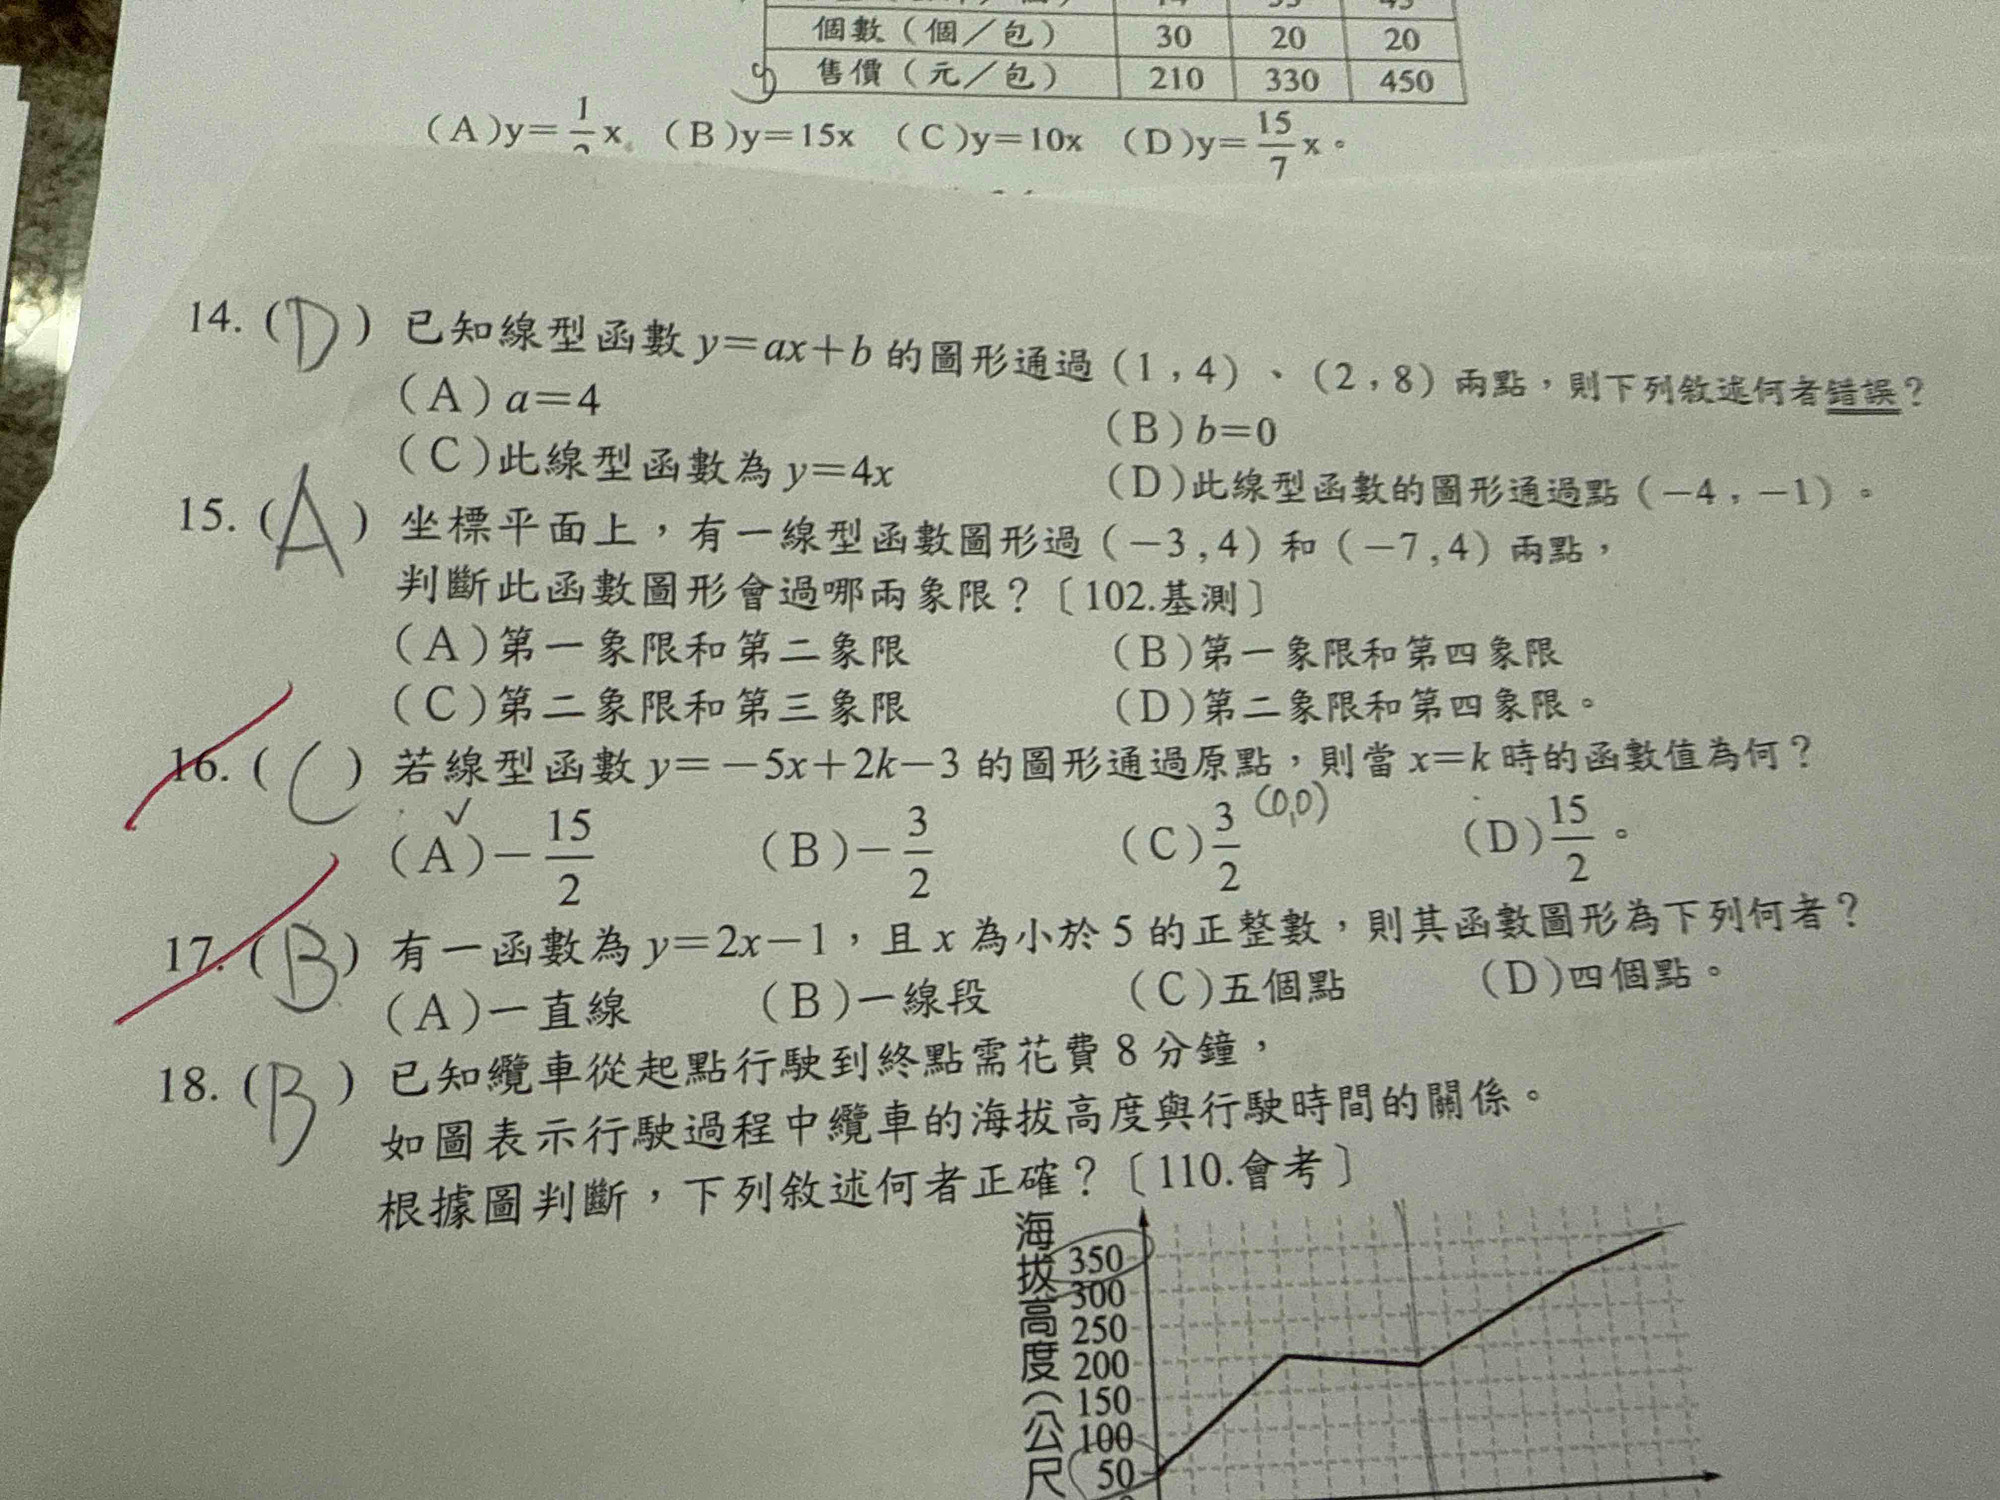 個數（個／包） 30 20 20
售價（元／包） 210 330 450
(A)y=1/2x (B)y=15x (C)y=10x (D)y=15/7x。
14. (D) 已知線型函數 y=ax+b 的圖形通過 (1,4)、(2,8) 兩點，則下列敘述何者錯誤？
(A) a=4 (B) b=0
(C)此線型函數為 y=4x (D)此線型函數的圖形通過點 (-4,-1)。
15. (A) 坐標平面上，有一線型函數圖形過 (-3,4) 和 (-7,4) 兩點，
判斷此函數圖形會過哪兩象限？〔102.基測〕
(A)第一象限和第二象限 (B)第一象限和第四象限
(C)第二象限和第三象限 (D)第二象限和第四象限。
16. (C) 若線型函數 y=-5x+2k-3 的圖形通過原點，則當 x=k 時的函數值為何？
(0,0)
(A)-15/2 (B)-3/2 (C)3/2 (D)15/2。
17. (B) 有一函數為 y=2x-1，且 x 為小於 5 的正整數，則其函數圖形為下列何者？
(A)一直線 (B)一線段 (C)五個點 (D)四個點。
18. (B) 已知纜車從起點行駛到終點需花費 8 分鐘，
如圖表示行駛過程中纜車的海拔高度與行駛時間的關係。
根據圖判斷，下列敘述何者正確？〔110.會考〕
海拔高度（公尺
350
300
250
200
150
100
50